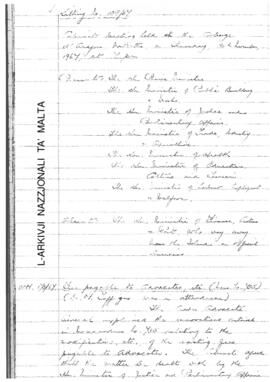 Sitting No. 109/67
Cabinet meeting held at the Auberge
d'Aragon Valletta on Thursday,
1967, at
Present: The Hon Prime Minister
The Hon Minister of Public Building
& Works
The Hon Minister of Justice and
Parliamentary Affairs
The Hon Minister of Trade, Industry
& Agriculture
The Hon Minister of Health
The Hon Minister of Education,
Culture and Tourism
The Hon Minister of Labour, Employment
& Welfare
Absent: The Hon Minister of Finance, Customs
& Port, who was away
from the Island on official
business
L-ARKIVJI NAZZJONALI TA' MALTA
Fees payable to Advocates, etc
was in attendance)
The Crown Advocate
General explained the
in Memorandum No. relating to the
modification, etc. of the existing fees
payable to Advocates. The Cabinet agreed
that the matter be dealt with by the
Hon Minister of Justice and Parliamentary Affairs